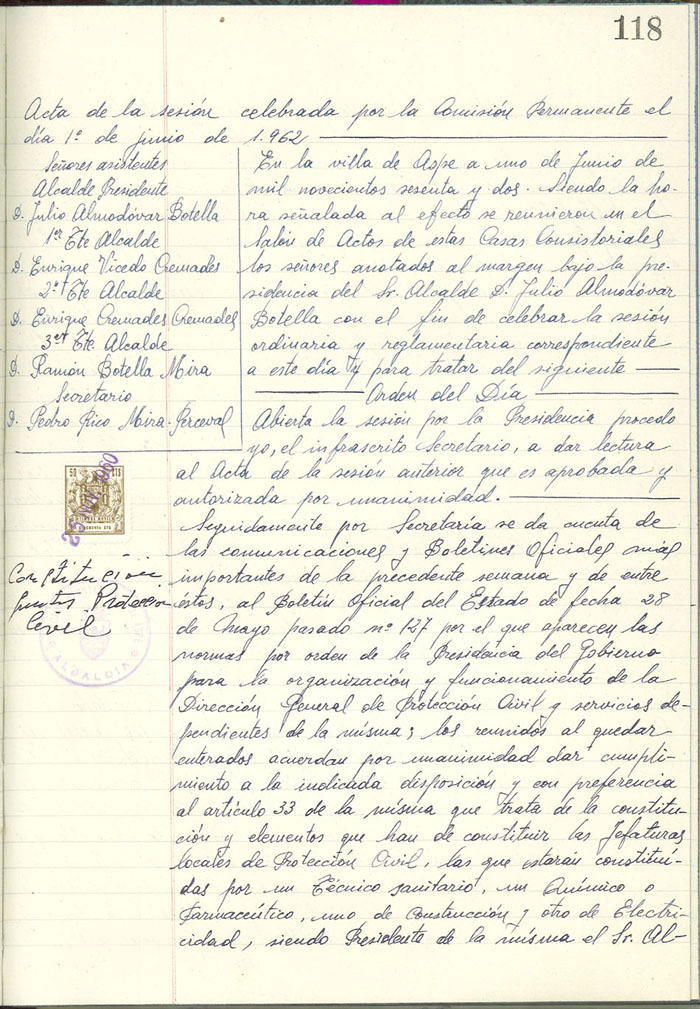 118
Acta de la sesión celebrada por la Comisión Permanente el
día 1º de junio de 1.962
Señores asistentes
Alcalde Presidente
D. Julio Almodóvar Botella
1er Tte Alcalde
D. Enrique Vicedo Cremades
2º Tte Alcalde
D. Enrique Cremades Cremades
3er Tte. Alcalde
D. Ramón Botella Mira
Secretario
D. Pedro Rico Mira-Perceval
En la villa de Aspe a uno de Junio de
mil novecientos sesenta y dos. Siendo la ho-
ra señalada al efecto se reunieron en el
Salón de Actos de estas Casas Consistoriales
los señores anotados al margen bajo la pre-
sidencia del Sr. Alcalde D. Julio Almodóvar
Botella con el fin de celebrar la sesión
ordinaria y reglamentaria correspondiente
a este día y para tratar del siguiente
Orden del Día
Abierta la sesión por la Presidencia procedo
yo, el infrascrito Secretario, a dar lectura
al Acta de la sesión anterior que es aprobada y
autorizada por unanimidad.
Seguidamente por Secretaría se da cuenta de
las comunicaciones y Boletines Oficiales más
importantes de la precedente semana y de entre
éstos, al Boletín Oficial del Estado de fecha 28
de Mayo pasado nº 127 por el que aparecen las
normas por orden de la Presidencia del Gobierno
para la organización y funcionamiento de la
Dirección General de Protección Civil y servicios de-
pendientes de la misma; los reunidos al quedar
enterados acuerdan por unanimidad dar cumpli-
miento a la indicada disposición y con preferencia
al artículo 33 de la misma que trata de la constitu-
ción y elementos que han de constituir las Jefaturas
locales de Protección Civil, las que estarán constituí-
das por un Técnico sanitario, un Químico o
Farmacéutico, uno de Construcción y otro de Electri-
cidad, siendo Presidente de la misma el Sr. Al-
50 CTS
1960
Constitución
juntas Protección
Civil
ALCALDIA